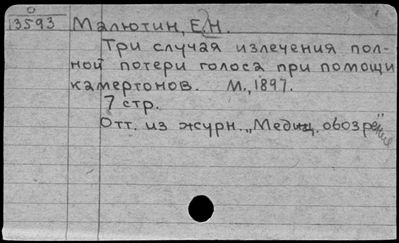 0
13593 Малютин, Е.Н.
Три случая излечения пол-
ной потери голоса при помощи
камертонов. М., 1897.
7 стр.
Отт. из журн. „Медиц. обозрение"